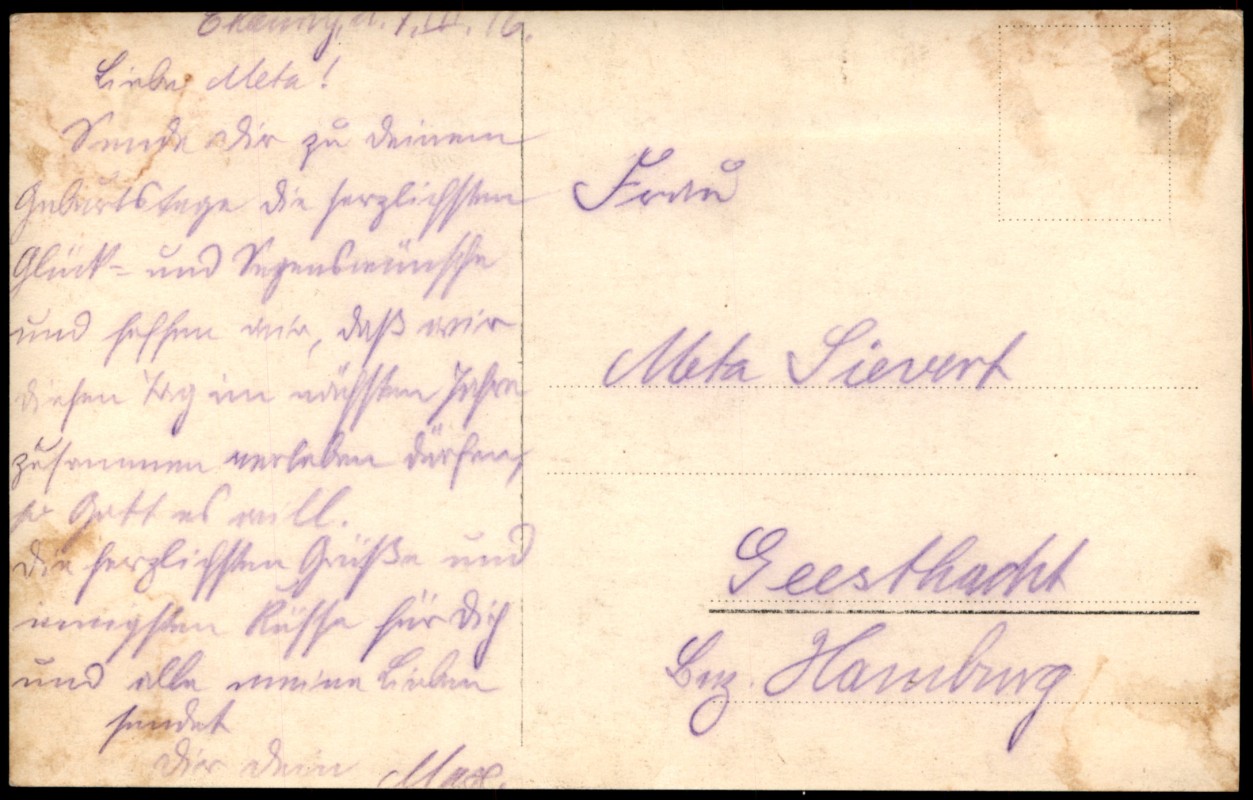 Liebe Meta!
Sende Dir zu Deinem
Geburtstage die herzlichsten
Glück- und Segenswünsche
und hoffen wir, daß wir
diesen Tag im nächsten Jahre
zusammen verleben dürfen,
so Gott es will.
Die herzlichsten Grüße und
innigsten Küsse für Dich
und alle meine Lieben
sendet
Dir Dein Max.
Frau
Meta Sievert
Geesthacht
Bez. Hamburg